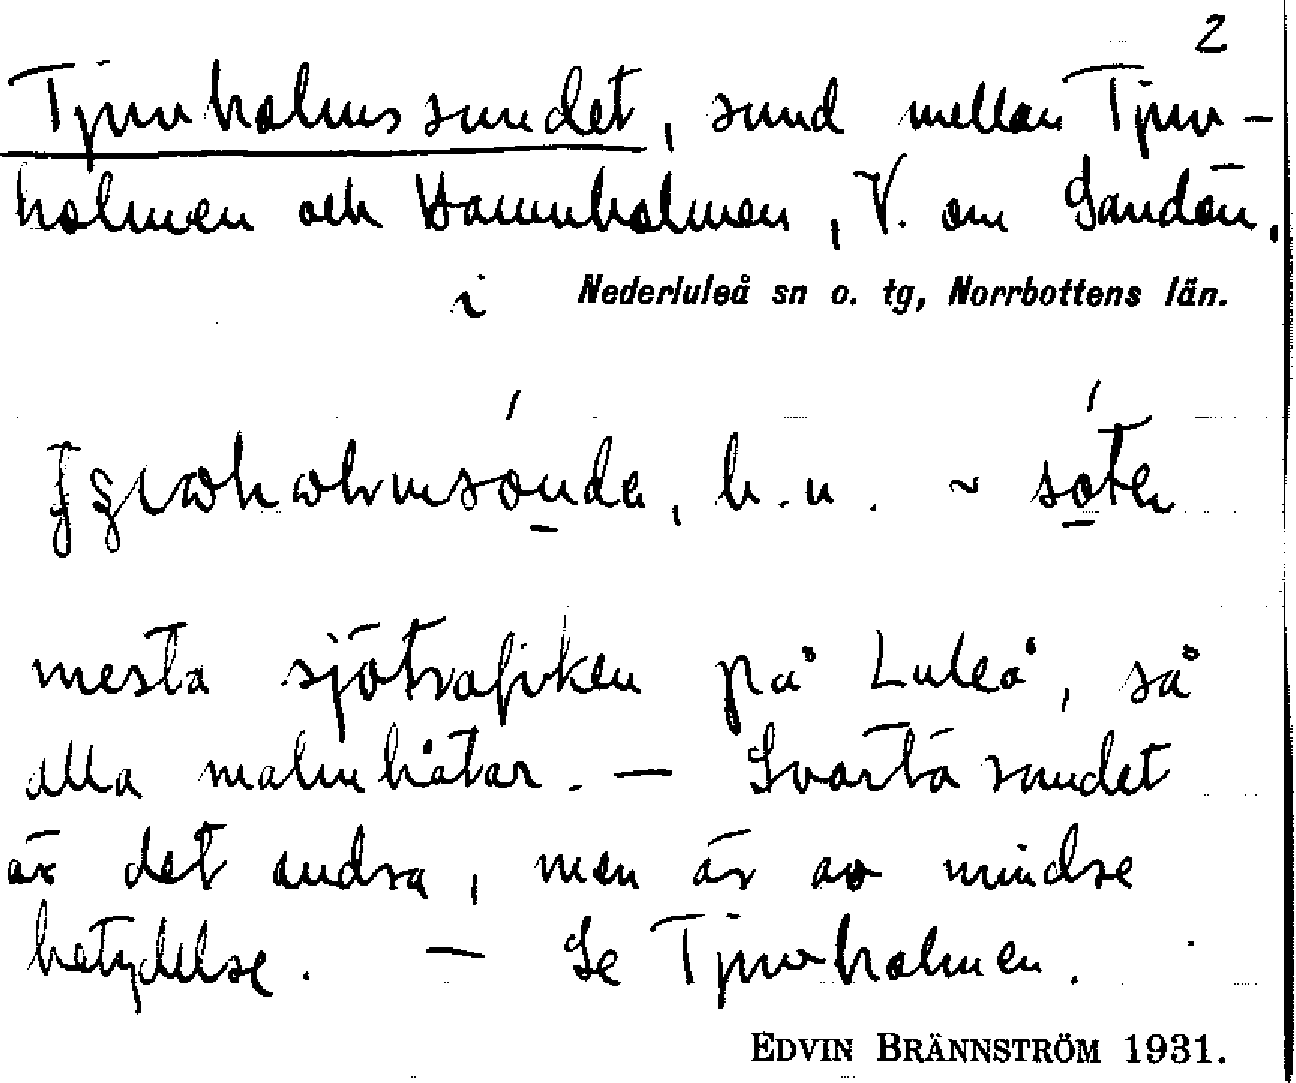 2
Tjuvholmssundet, sund mellan Tjuv-
holmen och Hamnholmen, V. om Sandön,
i Nederluleå sn o. tg, Norrbottens län.
b. u. ~
mesta sjötrafiken på Luleå, så
alla malmbåtar. — Svartösundet
är det andra, men är av mindre
betydelse. — Se Tjuvholmen.
EDVIN BRÄNNSTRÖM 1931.